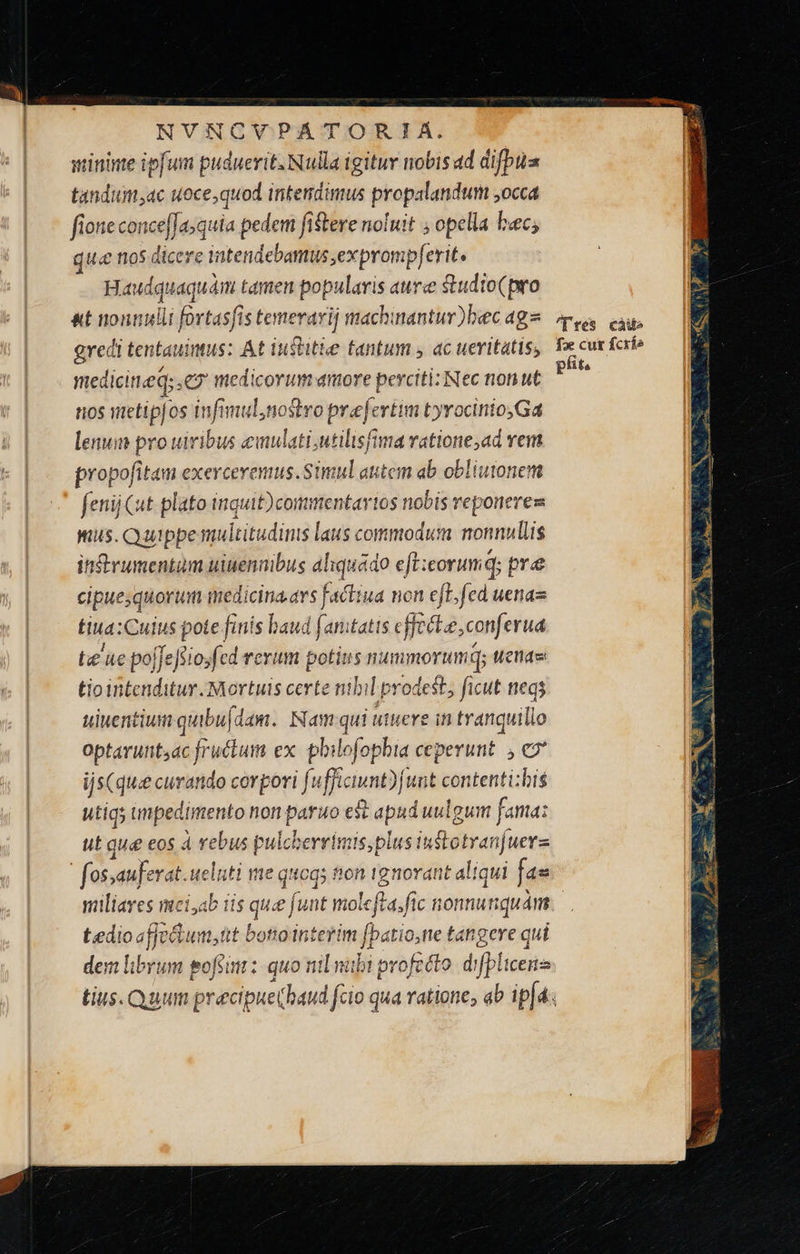 NVNCVPATORIA.
minime ipſum puduerit. Nulla igitur nobis ad diſpu=
tandum, ac uoce, quod intendimus propalandum, occa
ſione conceſſa, quia pedem ſiſtere noluit; opella hæc,
quæ nos dicere intendebamus, exprompſerit.
Haudquaquàm tamen popularis auræ ſtudio (pro
ut nonnulli fortaſsis temerarij machinantur) hæc ag=
gredi tentauimus: At iuſtitiæ tantum, ac ueritatis,
medicinæq;, & medicorum amore perciti: Nec non ut
nos metipſos inſimul, noſtro præſertim tyrocinio, Ga
lenum pro uiribus æmulati, utiliſsima ratione, ad rem
propoſitam exerceremus. Simul autem ab obliuionem
ſenij (ut plato inquit) commentarios nobis reponere=
mus. Quippe multitudinis laus commodum nonnullis
inſtrumentùm uiuennibus aliquādo eſt: eorumq; præ
cipue, quorum medicina ars factiua non eſt, ſed uena=
tiua: Cuius pote finis haud ſanitatis effectæ, conſerua
tæ'ue poſſeſsio, ſed rerum potius nummorumq; uena=
tio intenditur. Mortuis certe nihil prodeſt, ſicut neq;
uiuentium quibuſdam. Nam qui uiuere in tranquillo
optarunt, ac fructum ex philoſophia ceperunt, &
ijs (quæ curando corpori ſufficiunt) ſunt contenti: his
utiq; impedimento non paruo eſt apud uulgum fama:
ut quæ eos à rebus pulcherrimis, plus iuſto tranſuer=
ſos, auferat. ueluti me quoq; non ignorant aliqui fa=
miliares mei, ab iis quæ ſunt moleſta, ſic nonnunquàm
tædio affectum, ut bono interim ſpatio, ne tangere qui
dem librum poſsim: quo nil mihi profecto diſplicen=
tius. Quum præcipue (haud ſcio qua ratione, ab ipſa.
Tres cāu=
ſæ cur ſcri=
pſit.